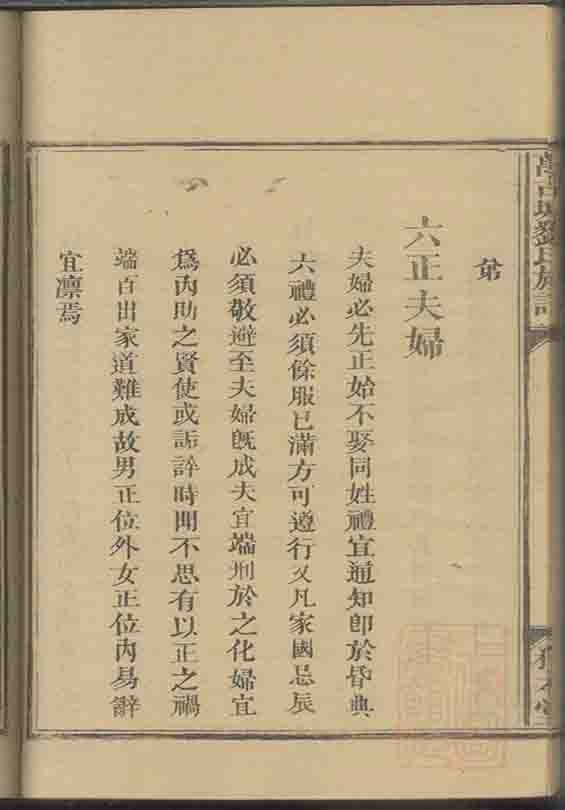 劉氏族譜
弟
六正夫婦
夫婦必先正始不娶同姓禮宜通知卽於昏典
六禮必須餘服已滿方可遵行又凡家國忌辰
必須敬避至夫婦旣成夫宜端刑於之化婦宜
爲內助之賢使或詬誶時聞不思有以正之禍
端百出家道難成故男正位外女正位內易辭
宜凛焉